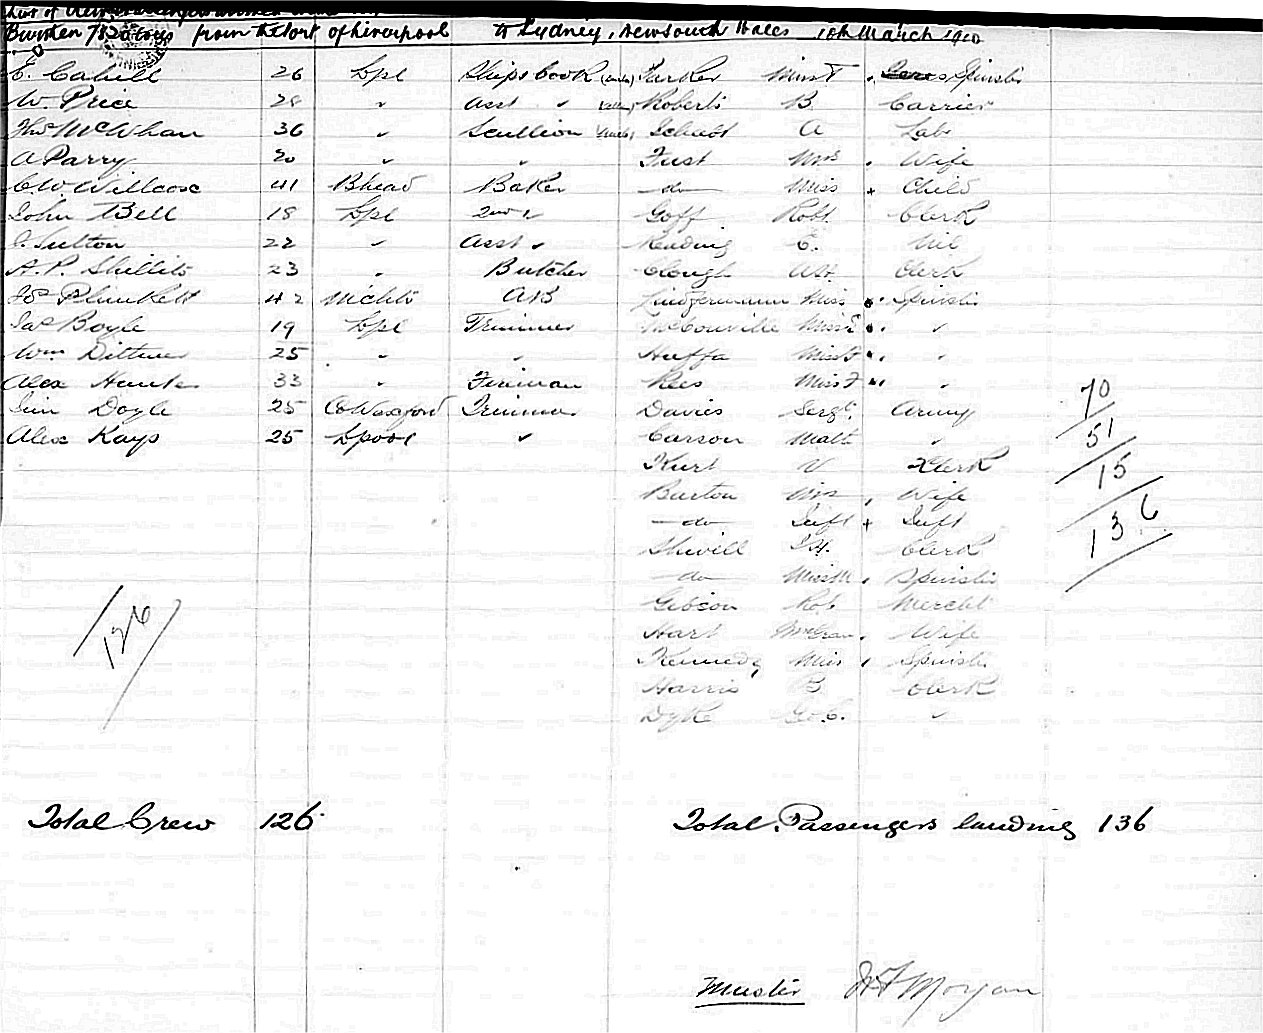 List of
Burthen 7130 tons from the Port of Liverpool to Sydney, New South Wales 10th March 1910
E. Cahill 26 Lpl Ships Cook Parker Miss T Spinster
W. Price 28 " Asst " Roberts B Carrier
Thos McWhan 36 " Scullion Schust A Lab
A Parry 20 " " Fust Mrs Wife
C.W. Willcox 41 Bhead Baker do Miss + Child
John Bell 18 Lpl 2nd " Goff Robt Clerk
J. Sutton 22 " Asst " Reading E. Nil
A. P. Shillito 23 " Butcher Clough AH Clerk
Jos Plunkett 42 AB Miss Spinster
Jas Boyle 19 Lpl Trimmer "
Wm Dittmer 25 " " Huffa Miss F "
Alex Hunter 33 " Fireman Rees Miss F "
Jim Doyle 25 Co Wexford Trimmer Davies Sergt. Army 70
Alex Kays 25 Lpool " Carson Matt " 51
Kurt V Clerk 15
Burton Mrs Wife
do Inft + Inft 136
Shivill Clerk
do Miss M. Spinster
Gibson Rob Mercht
126 Hart Wife
Kennedy Miss Spinster
Harris B Clerk
Dyke Geo C. "
Total Crew 126 Total Passengers landing 136
Master Morgan